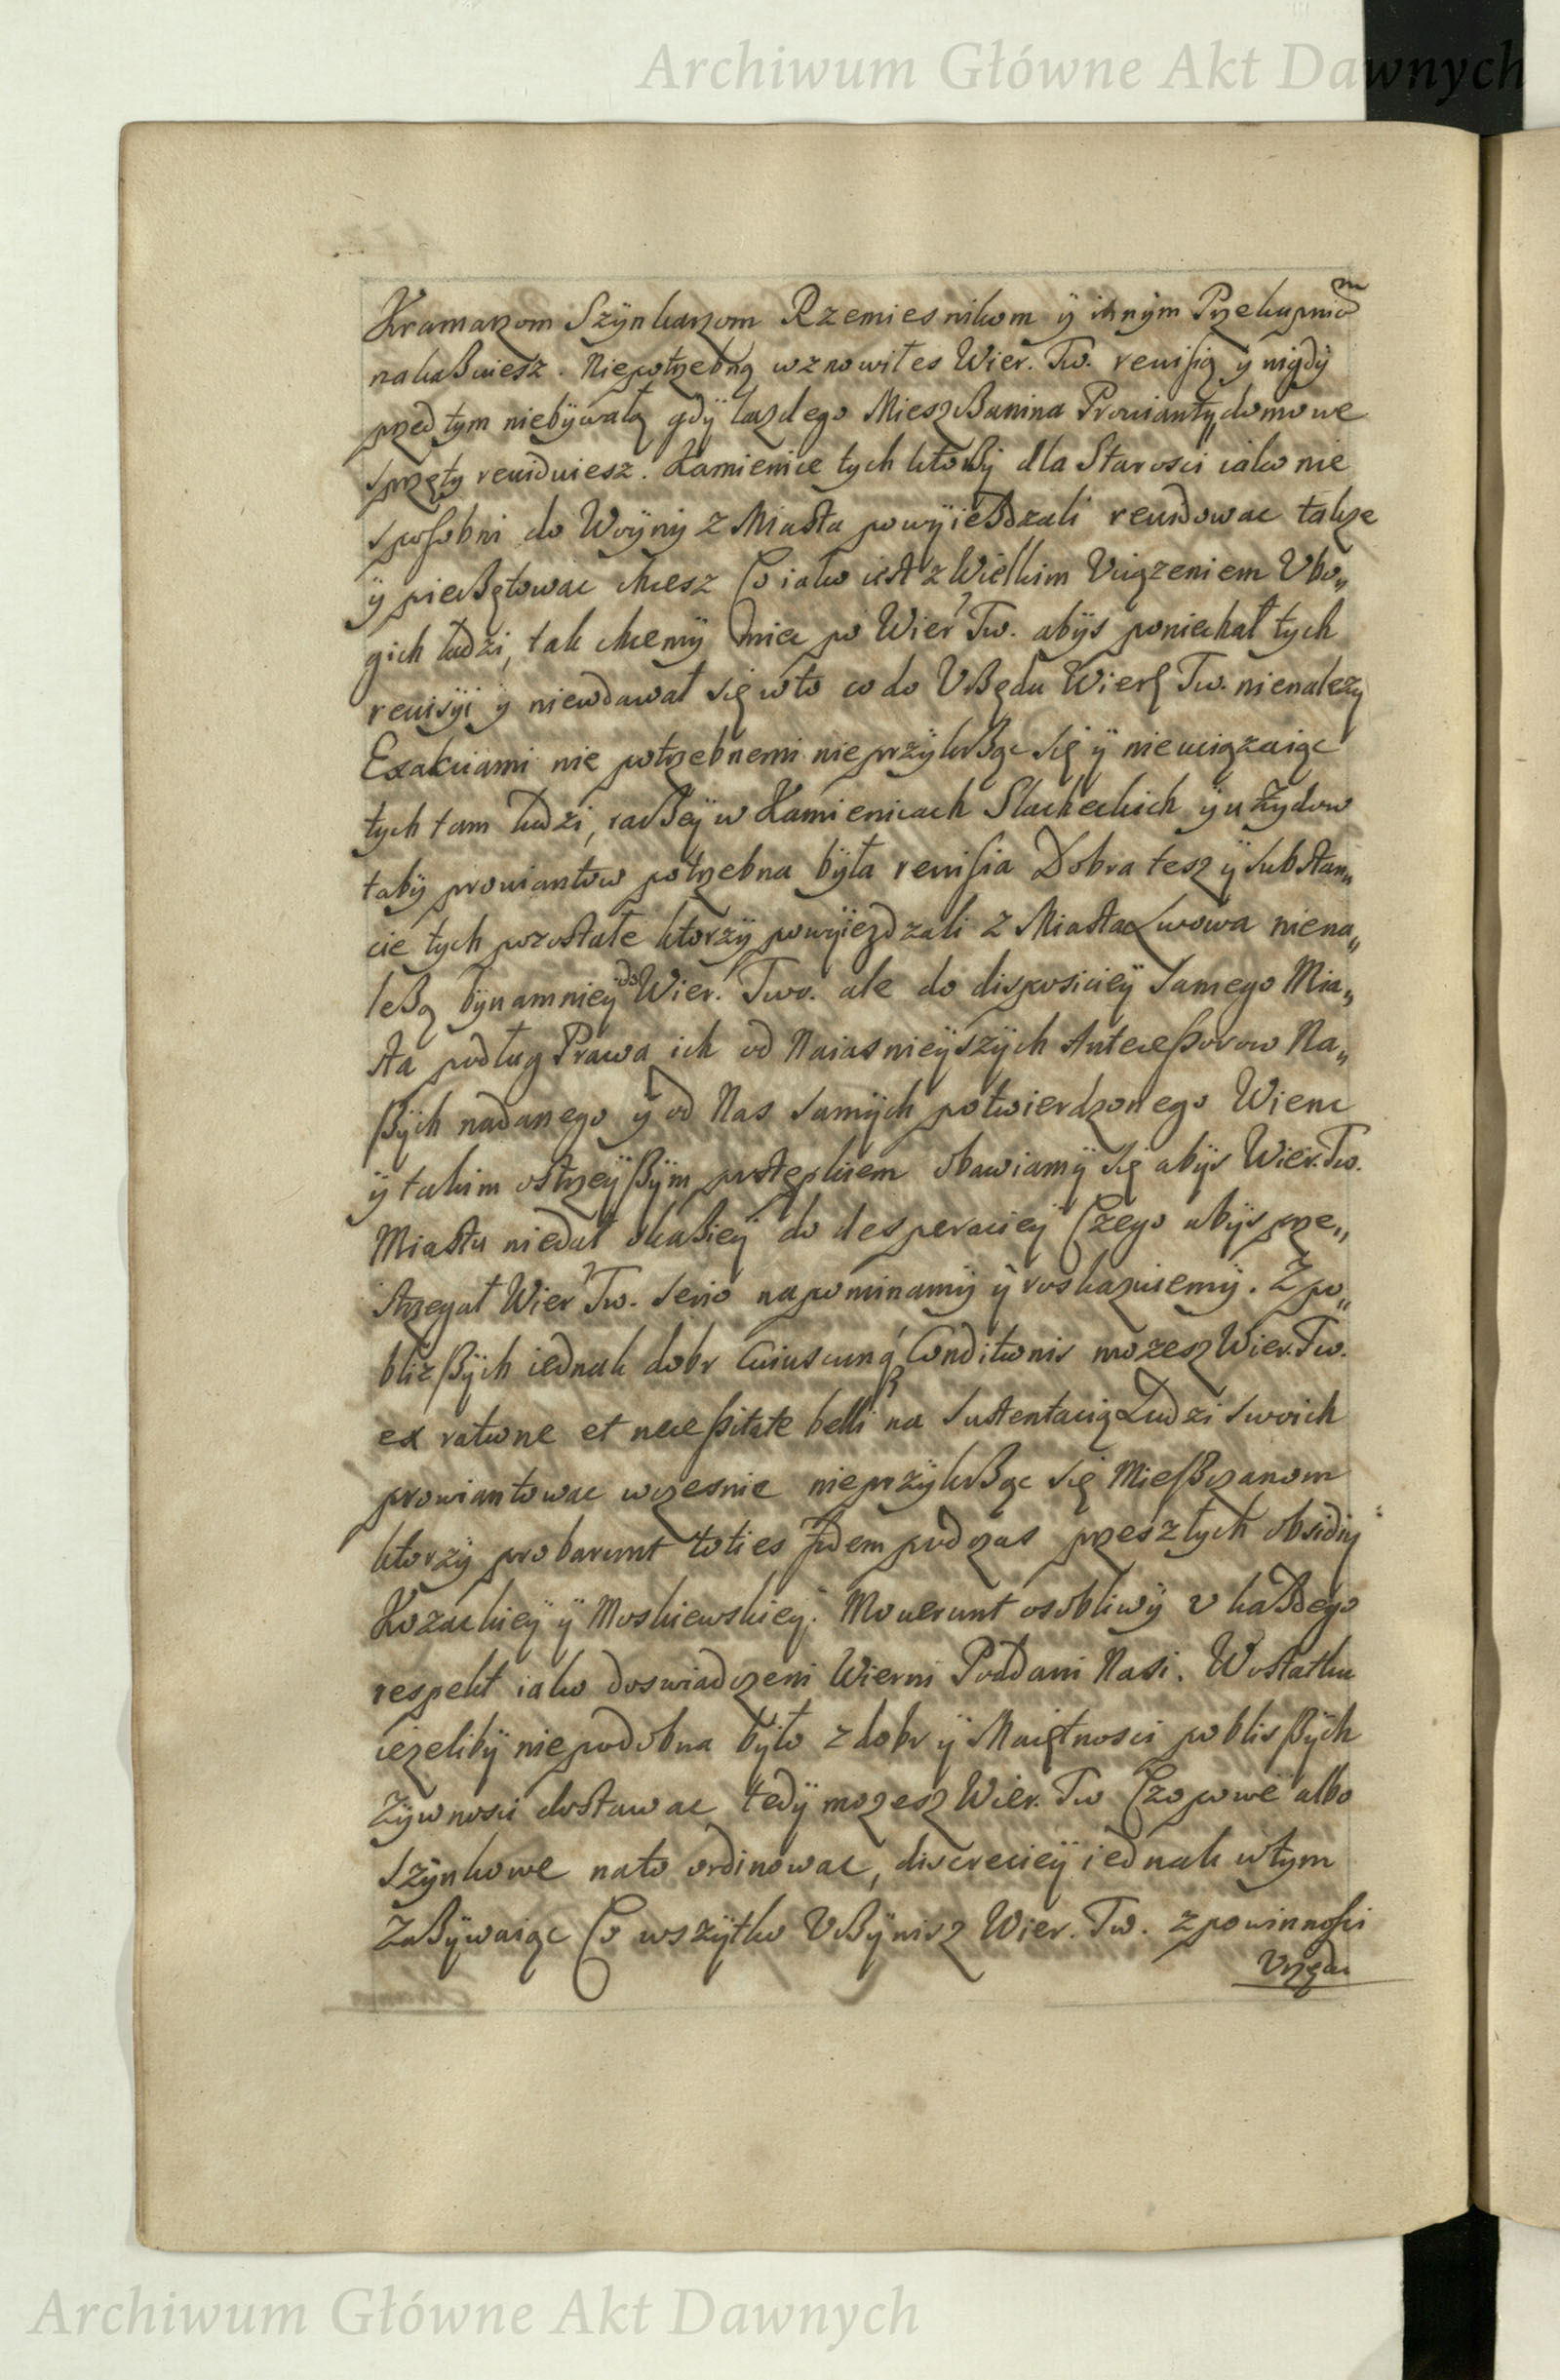 Archiwum Główne Akt Dawnych
Kramarzom Szÿnkarzom Rzemiesnikom ÿ innÿm Przekupniom
nakaßuiesz. Niepotrzebną wznowiłes Wier. Tw. reuisią ÿ nigdÿ
przed tym niebÿwałą gdÿ kazdego Mieszßanina Prouianty, domowe
sprzęty reuiduiesz. Kamienice tych ktorßÿ dla Starosci iako nie
sposobni do Woÿnÿ z Miasta powÿießdzali reuidowac takze
ÿ pießętowac chcesz Co iako iest z Wielkim Uciązeniem Vbo„
gich ludzi, tak chcemÿ miec po Wier. Tw. abÿs poniechał tych
reuisÿi ÿ niewdawał się w to co do Vßędu Wier. Tw. nienalezy
Exakciami nie potrzebnemi nieprzÿkrßąc się ÿ nieuciązaiąc
tych tam ludzi, radßeÿ w Kamienicach Slacheckich ÿ u Zydow
tabÿ prouiantow potrzebna bÿła reuisia Dobra tesz ÿ substan„
cie tych pozostałe ktorzÿ powÿiezdzali z Miasta Lwowa niena„
leßą bÿnamnieÿ do Wier. Twr. ale do disposicieÿ samego Mia„
sta podług Prawa ich od Naiasnieÿszÿch Antecessorow Na„
ßÿch nadanego ÿ od Nas samÿch potwierdzonego Wienc
ÿ takim ostrzeÿßÿm postępkiem obawiamÿ się abÿs Wier. Tw.
Miastu niedał okaßieÿ do desperacieÿ Czego abÿs prze„
strzegał Wier. Tw. serio napominamÿ ÿ roskazuiemÿ. Z po„
blizßÿch iednak dobr cuiuscunq Conditionis mozesz Wier. Tw.
ex ratione et necessitate belli na sustentacią Ludzi swoich
prowiantowac wczesnie nieprzÿkrßąc się Mießczanom
ktorzÿ probarunt toties fidem podczas przeszłych obsidiÿ
Kozackieÿ ÿ Moskiewskieÿ. Mouerunt osobliwÿ v kaßdego
respekt iako doswiadczeni Wierni Poddani Nasi. Wostatku
iezelibÿ niepodobna bÿło z dobr ÿ Maiętnosci poblisßÿch
Zÿwnosci dostawac tedÿ mozesz Wier. Tw Czopowe albo
szÿnkowe nato ordinowac, discrecieÿ iednak wtym
Zaßÿwaiąc Co wszÿtko Vßÿnisz Wier. Tw. z powinnosci
Vrzędu
Archiwum Główne Akt Dawnych